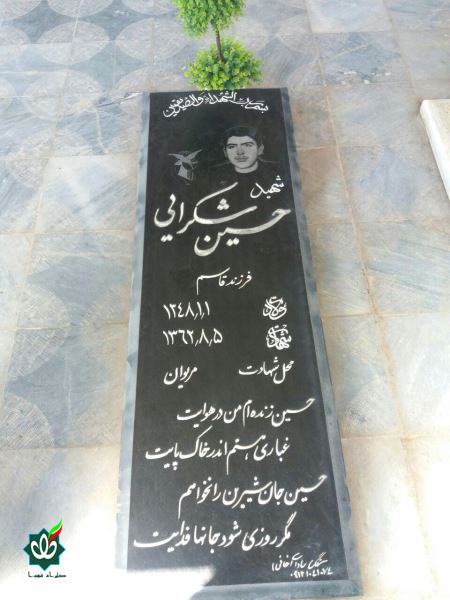 بسم رب الشهداء والصدیقین
شهید
حسین شکرایی
فرزند قاسم
تولد ۱۲۴۸٫۱٫۱
شهادت ۱۳۶۲٫۸٫۵
محل شهادت مریوان
حسین زنده ام من در هوایت
غباری هستم اندر خاک پایت
حسین جان شیرین را نخواهم
مگر روزی شود جانها فدایت